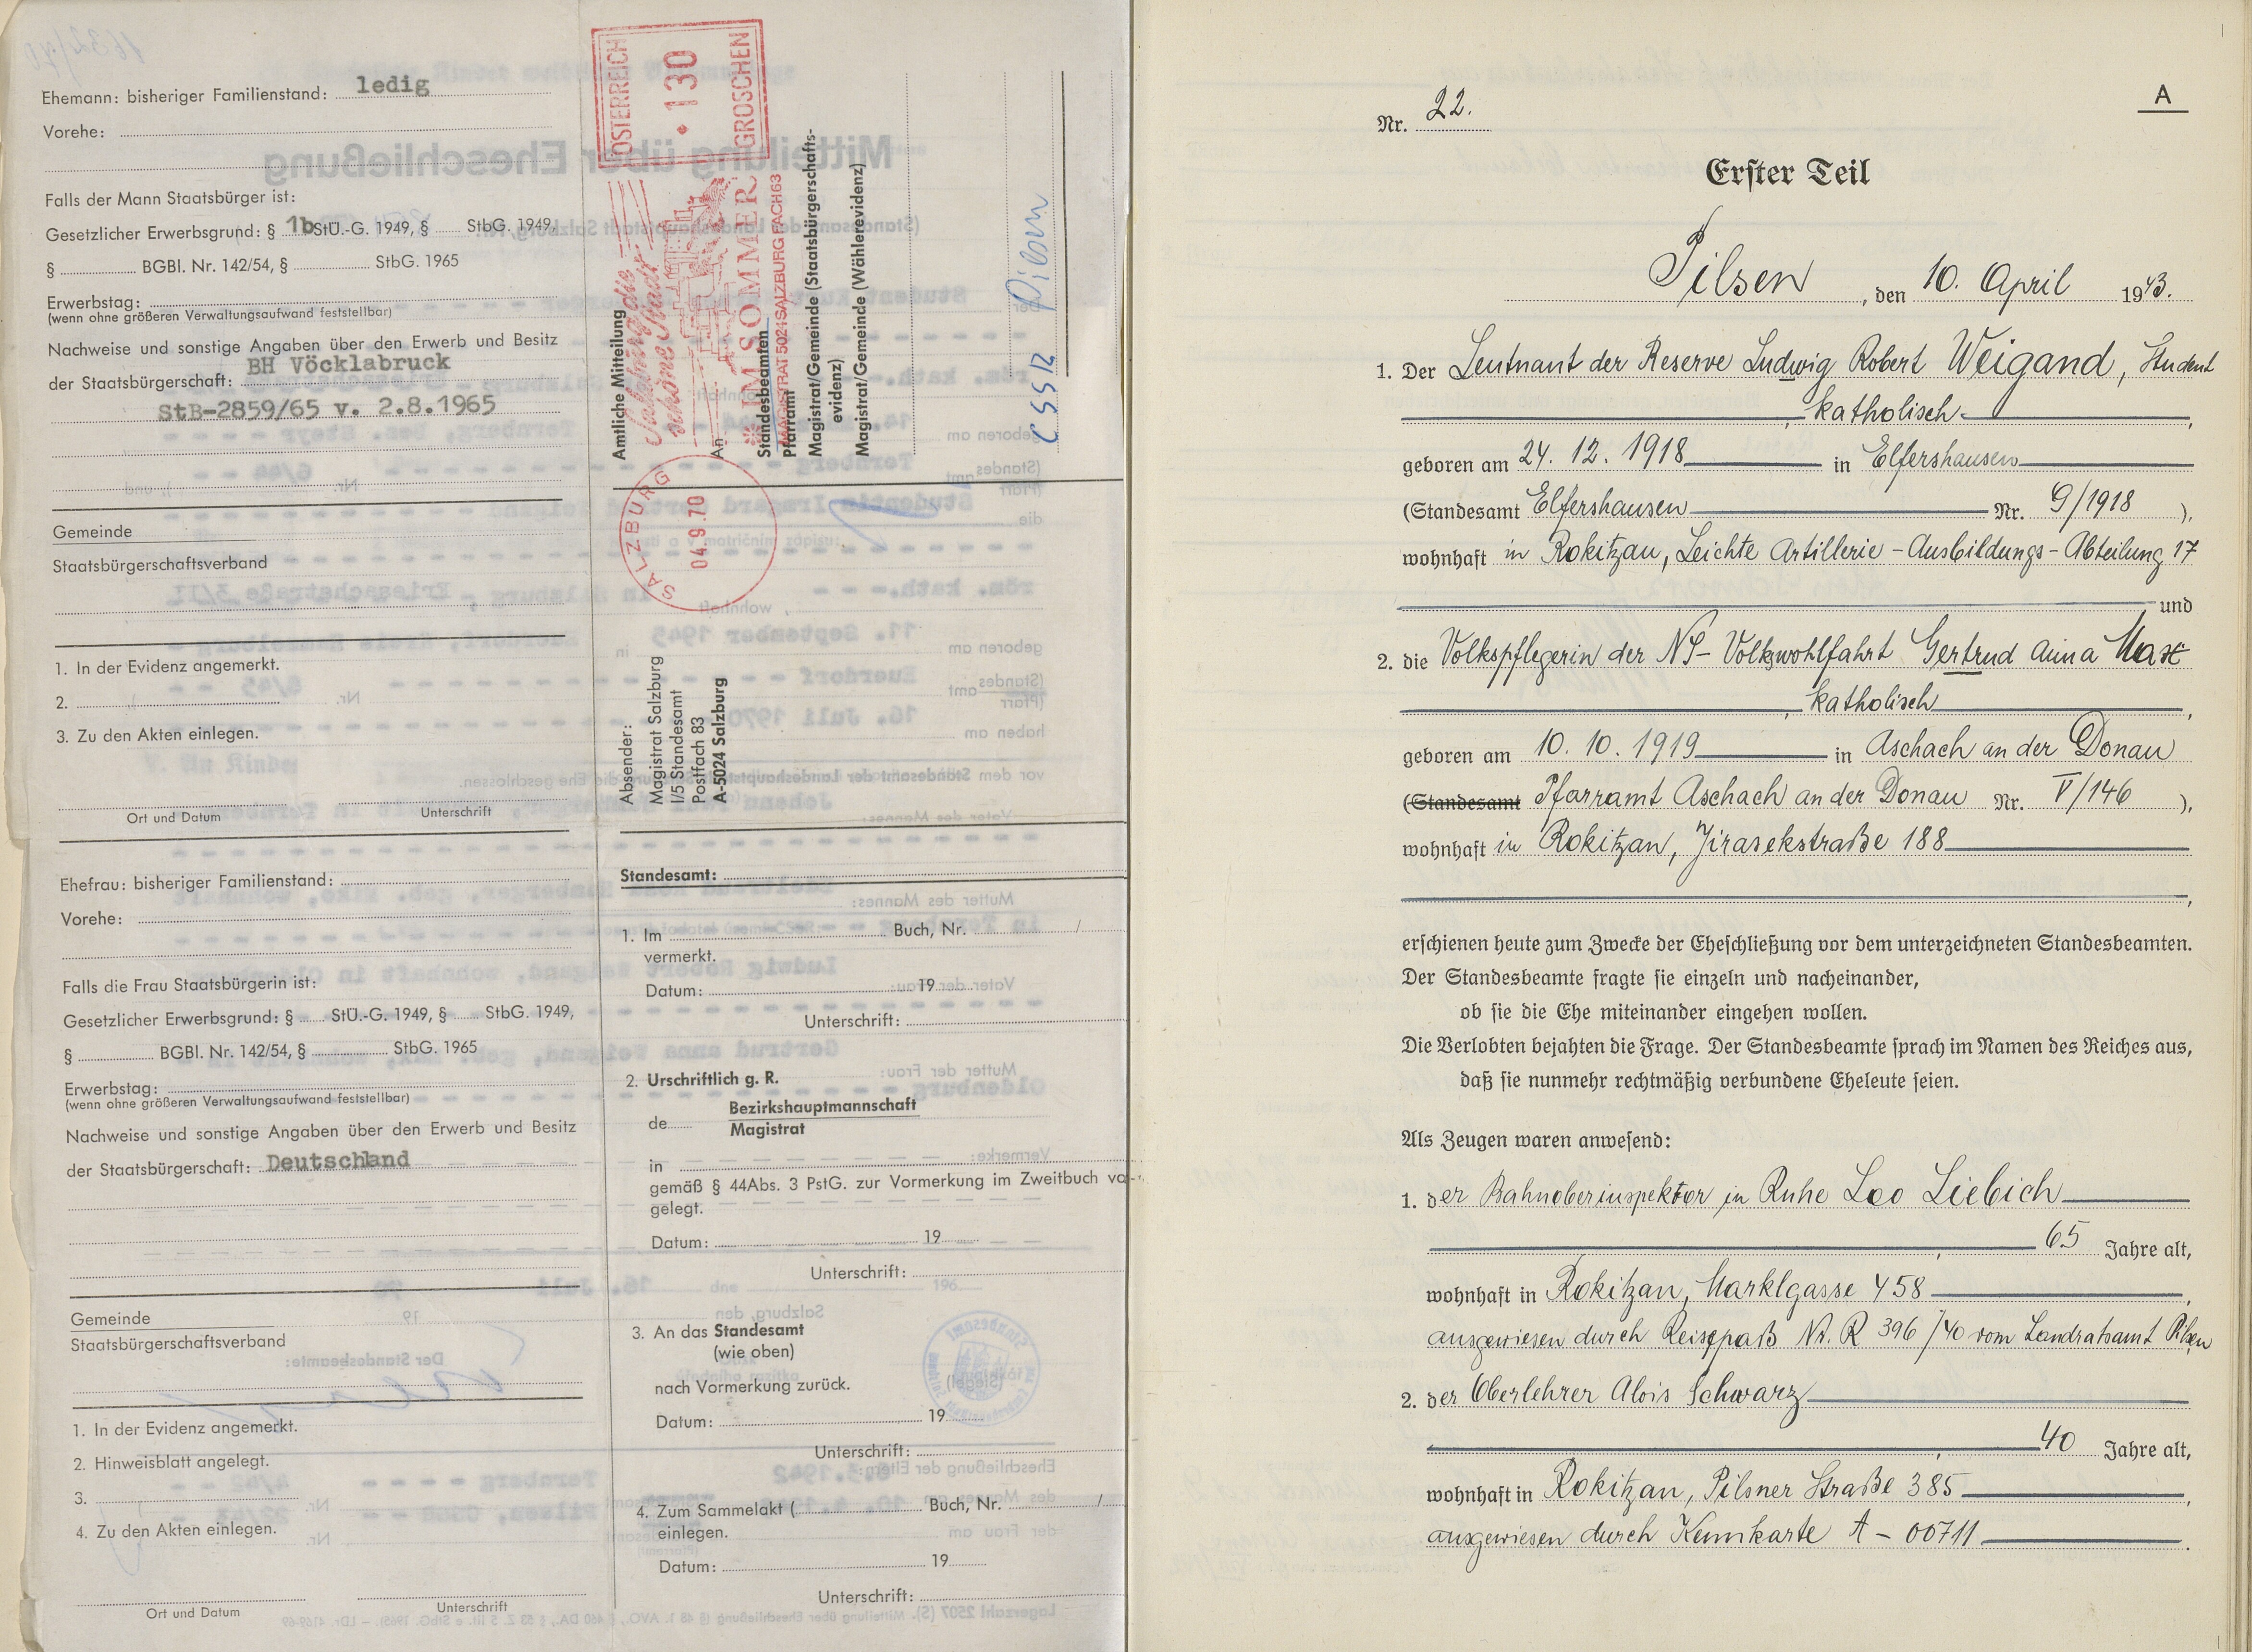 Ehemann: bisheriger Familienstand: ledig
Vorehe:
Falls der Mann Staatsbürger ist:
Gesetzlicher Erwerbsgrund: § 1b StÜ.-G. 1949, § StbG. 1949,
§ BGBl. Nr. 142/54, § StbG. 1965
Erwerbstag:
(wenn ohne größeren Verwaltungsaufwand feststellbar)
Nachweise und sonstige Angaben über den Erwerb und Besitz
der Staatsbürgerschaft: BH Vöcklabruck
StB-2859/65 v. 2.8.1965
Gemeinde
Staatsbürgerschaftsverband
1. In der Evidenz angemerkt.
2.
3. Zu den Akten einlegen.
Ort und Datum Unterschrift
Ehefrau: bisheriger Familienstand:
Vorehe:
Falls die Frau Staatsbürgerin ist:
Gesetzlicher Erwerbsgrund: § StÜ.-G. 1949, § StbG. 1949,
§ BGBl. Nr. 142/54, § StbG. 1965
Erwerbstag:
(wenn ohne größeren Verwaltungsaufwand feststellbar)
Nachweise und sonstige Angaben über den Erwerb und Besitz
der Staatsbürgerschaft: Deutschland
Gemeinde
Staatsbürgerschaftsverband
1. In der Evidenz angemerkt.
2. Hinweisblatt angelegt.
3.
4. Zu den Akten einlegen.
Ort und Datum Unterschrift
ÖSTERREICH
130
GROSCHEN
Salzburg die
schöne Stadt
IM SOMMER
MAGISTRAT 5021 SALZBURG FACH 63
SALZBURG
04.9.70
Amtliche Mitteilung
An
Standesbeamten
Pfarramt
Magistrat/Gemeinde (Staatsbürgerschafts-
evidenz)
Magistrat/Gemeinde (Wählerevidenz)
Pilsen
CSSR
Absender:
Magistrat Salzburg
I/5 Standesamt
Postfach 83
A-5024 Salzburg
Standesamt:
1. Im Buch, Nr. /
vermerkt.
Datum: 19
Unterschrift:
2. Urschriftlich g. R.
de Bezirkshauptmannschaft
Magistrat
in
gemäß § 44Abs. 3 PstG. zur Vormerkung im Zweitbuch vo
gelegt.
Datum: 19
Unterschrift:
3. An das Standesamt
(wie oben)
nach Vormerkung zurück.
Datum: 19
Unterschrift:
4. Zum Sammelakt ( Buch, Nr. /
einlegen.
Datum: 19
Unterschrift:
A
Nr. 22.
Erster Teil
Pilsen, den 10. April 1943.
1. Der Leutnant der Reserve Ludwig Robert Weigand, Student
, katholisch ,
geboren am 24. 12. 1918 in Elfershausen
(Standesamt Elfershausen Nr. 9/1918 ),
wohnhaft in Rokitzan, Leichte Artillerie-Ausbildungs-Abteilung 17
und
2. die Volkspflegerin der NS-Volkswohlfahrt Gertrud Anna Max
, katholisch ,
geboren am 10. 10. 1919 in Aschach an der Donau
(Standesamt Pfarramt Aschach an der Donau Nr. V/146 ),
wohnhaft in Rokitzan, Jirasekstraße 188
,
erschienen heute zum Zwecke der Eheschließung vor dem unterzeichneten Standesbeamten.
Der Standesbeamte fragte sie einzeln und nacheinander,
ob sie die Ehe miteinander eingehen wollen.
Die Verlobten bejahten die Frage. Der Standesbeamte sprach im Namen des Reiches aus,
daß sie nunmehr rechtmäßig verbundene Eheleute seien.
Als Zeugen waren anwesend:
1. der Bahnoberinspektor in Ruhe Leo Liebich
, 65 Jahre alt,
wohnhaft in Rokitzan, Marklgasse 458 ,
ausgewiesen durch Reisepaß Nr. R 396/40 vom Landratsamt Pilsen
2. der Oberlehrer Alois Schwarz
, 40 Jahre alt,
wohnhaft in Rokitzan, Pilsner Straße 385 ,
ausgewiesen durch Kennkarte A - 00711 .